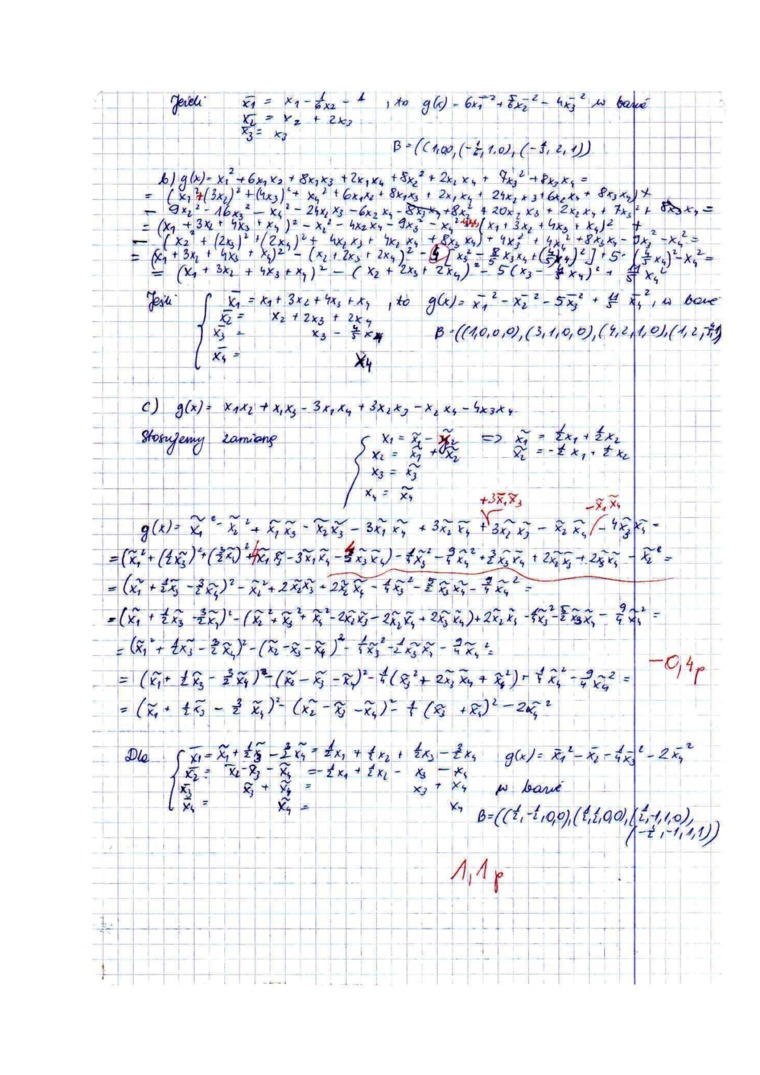 Jeśli x̄₁ = x₁ - 1/6x₂ - 1, to g(x) - 6x̄₁² + 5/6x̄₂² - 4x̄₃² w bazie
x̄₂ = x₂ + 2x₃
x̄₃ = x₃
B = ((1,0,0), (-1/6,1,0), (-1/3,2,1))
b) g(x) = x₁² + 6x₁x₂ + 8x₁x₃ + 2x₁x₄ + 8x₂² + 2x₂x₄ + 7x₃² + 8x₃x₄ =
= (x₁² + (3x₂)² + (4x₃)² + x₄² + 6x₁x₂ + 8x₁x₃ + 2x₁x₄ + 24x₂x₃ + 6x₂x₄ + 8x₃x₄) +
- 9x₂² - 16x₃² - x₄² - 24x₂x₃ - 6x₂x₄ - 8x₃x₄ + 8x₂² + 20x₂x₃ + 2x₂x₄ + 7x₃² + 8x₃x₄ =
= (x₁ + 3x₂ + 4x₃ + x₄)² - x₂² - 4x₂x₄ - 9x₃² - x₄² (x₁ + 3x₂ + 4x₃ + x₄)² +
- (x₂² + (2x₃)² + (2x₄)² + 4x₂x₃ + 4x₂x₄ + 8x₃x₄) + 4x₃² + 4x₄² + 8x₃x₄ - 9x₃² - x₄² =
= (x₁ + 3x₂ + 4x₃ + x₄)² - (x₂ + 2x₃ + 2x₄)² - 5[x₃² - 8/5x₃x₄ + (4/5x₄)²] + 5·(4/5x₄)² - x₄² =
= (x₁ + 3x₂ + 4x₃ + x₄)² - (x₂ + 2x₃ + 2x₄)² - 5(x₃ - 4/5x₄)² + 11/5x₄²
Jeśli x̄₁ = x₁ + 3x₂ + 4x₃ + x₄, to g(x) = x̄₁² - x̄₂² - 5x̄₃² + 11/5x̄₄², w bazie
x̄₂ = x₂ + 2x₃ + 2x₄
x̄₃ = x₃ - 4/5x₄ B = ((1,0,0,0), (3,1,0,0), (4,2,1,0), (1,2,-4/5,1)
x̄₄ = x₄
c) g(x) = x₁x₂ + x₁x₃ - 3x₁x₄ + 3x₂x₃ - x₂x₄ - 4x₃x₄
Stosujemy zamianę x₁ = x̃₁ - x̃₂ => x̃₁ = ½x₁ + ½x₂
x₂ = x̃₁ + x̃₂ x̃₂ = -½x₁ + ½x₂
x₃ = x̃₃
x₄ = x̃₄
+3x̃₁x̃₃ -x̃₁x̃₄
g(x) = x̃₁² - x̃₂² + x̃₁x̃₃ - x̃₂x̃₃ - 3x̃₁x̃₄ + 3x̃₂x̃₄ + 3x̃₂x̃₃ - x̃₂x̃₄ - 4x̃₃x̃₄ =
= (x̃₁² + (½x̃₃)² + (3/2x̃₄)² + x̃₁x̃₃ - 3x̃₁x̃₄ - 3/2x̃₃x̃₄) - ¼x̃₃² - 9/4x̃₄² + 3/2x̃₃x̃₄ + 2x̃₂x̃₃ + 2x̃₂x̃₄ - x̃₂² =
= (x̃₁ + ½x̃₃ - 3/2x̃₄)² - x̃₂² + 2x̃₂x̃₃ + 2x̃₂x̃₄ - ¼x̃₃² - 5/2x̃₃x̃₄ - 9/4x̃₄² =
= (x̃₁ + ½x̃₃ - 3/2x̃₄)² - (x̃₂² + x̃₃² + x̃₄² - 2x̃₂x̃₃ - 2x̃₂x̃₄ + 2x̃₃x̃₄) + 2x̃₃x̃₄ - ¼x̃₃² - 5/2x̃₃x̃₄ - 9/4x̃₄² =
= (x̃₁² + ½x̃₃ - 3/2x̃₄)² - (x̃₂ - x̃₃ - x̃₄)² - ¼x̃₃² - ½x̃₃x̃₄ - 9/4x̃₄² =
= (x̃₁ + ½x̃₃ - 3/2x̃₄)² - (x̃₂ - x̃₃ - x̃₄)² - ¼(x̃₃² + 2x̃₃x̃₄ + x̃₄²) + ¼x̃₄² - 9/4x̃₄² =
-0,4p
= (x̃₁ + ½x̃₃ - 3/2x̃₄)² - (x̃₂ - x̃₃ - x̃₄)² - ¼(x̃₃ + x̃₄)² - 2x̃₄²
Dla x̄₁ = x̃₁ + ½x̃₃ - 3/2x̃₄ = ½x₁ + ½x₂ + ½x₃ - 3/2x₄ g(x) = x̄₁² - x̄₂ - ¼x̄₃² - 2x̄₄²
x̄₂ = x̃₂ - x̃₃ - x̃₄ = -½x₁ + ½x₂ - x₃ - x₄
x̄₃ = x̃₃ + x̃₄ = x₃ + x₄ w bazie
x̄₄ = x̃₄ = x₄
B = ((½,-½,0,0), (½,½,0,0), (½,-1,1,0),
(-3/2,-1,1,1))
1,1p